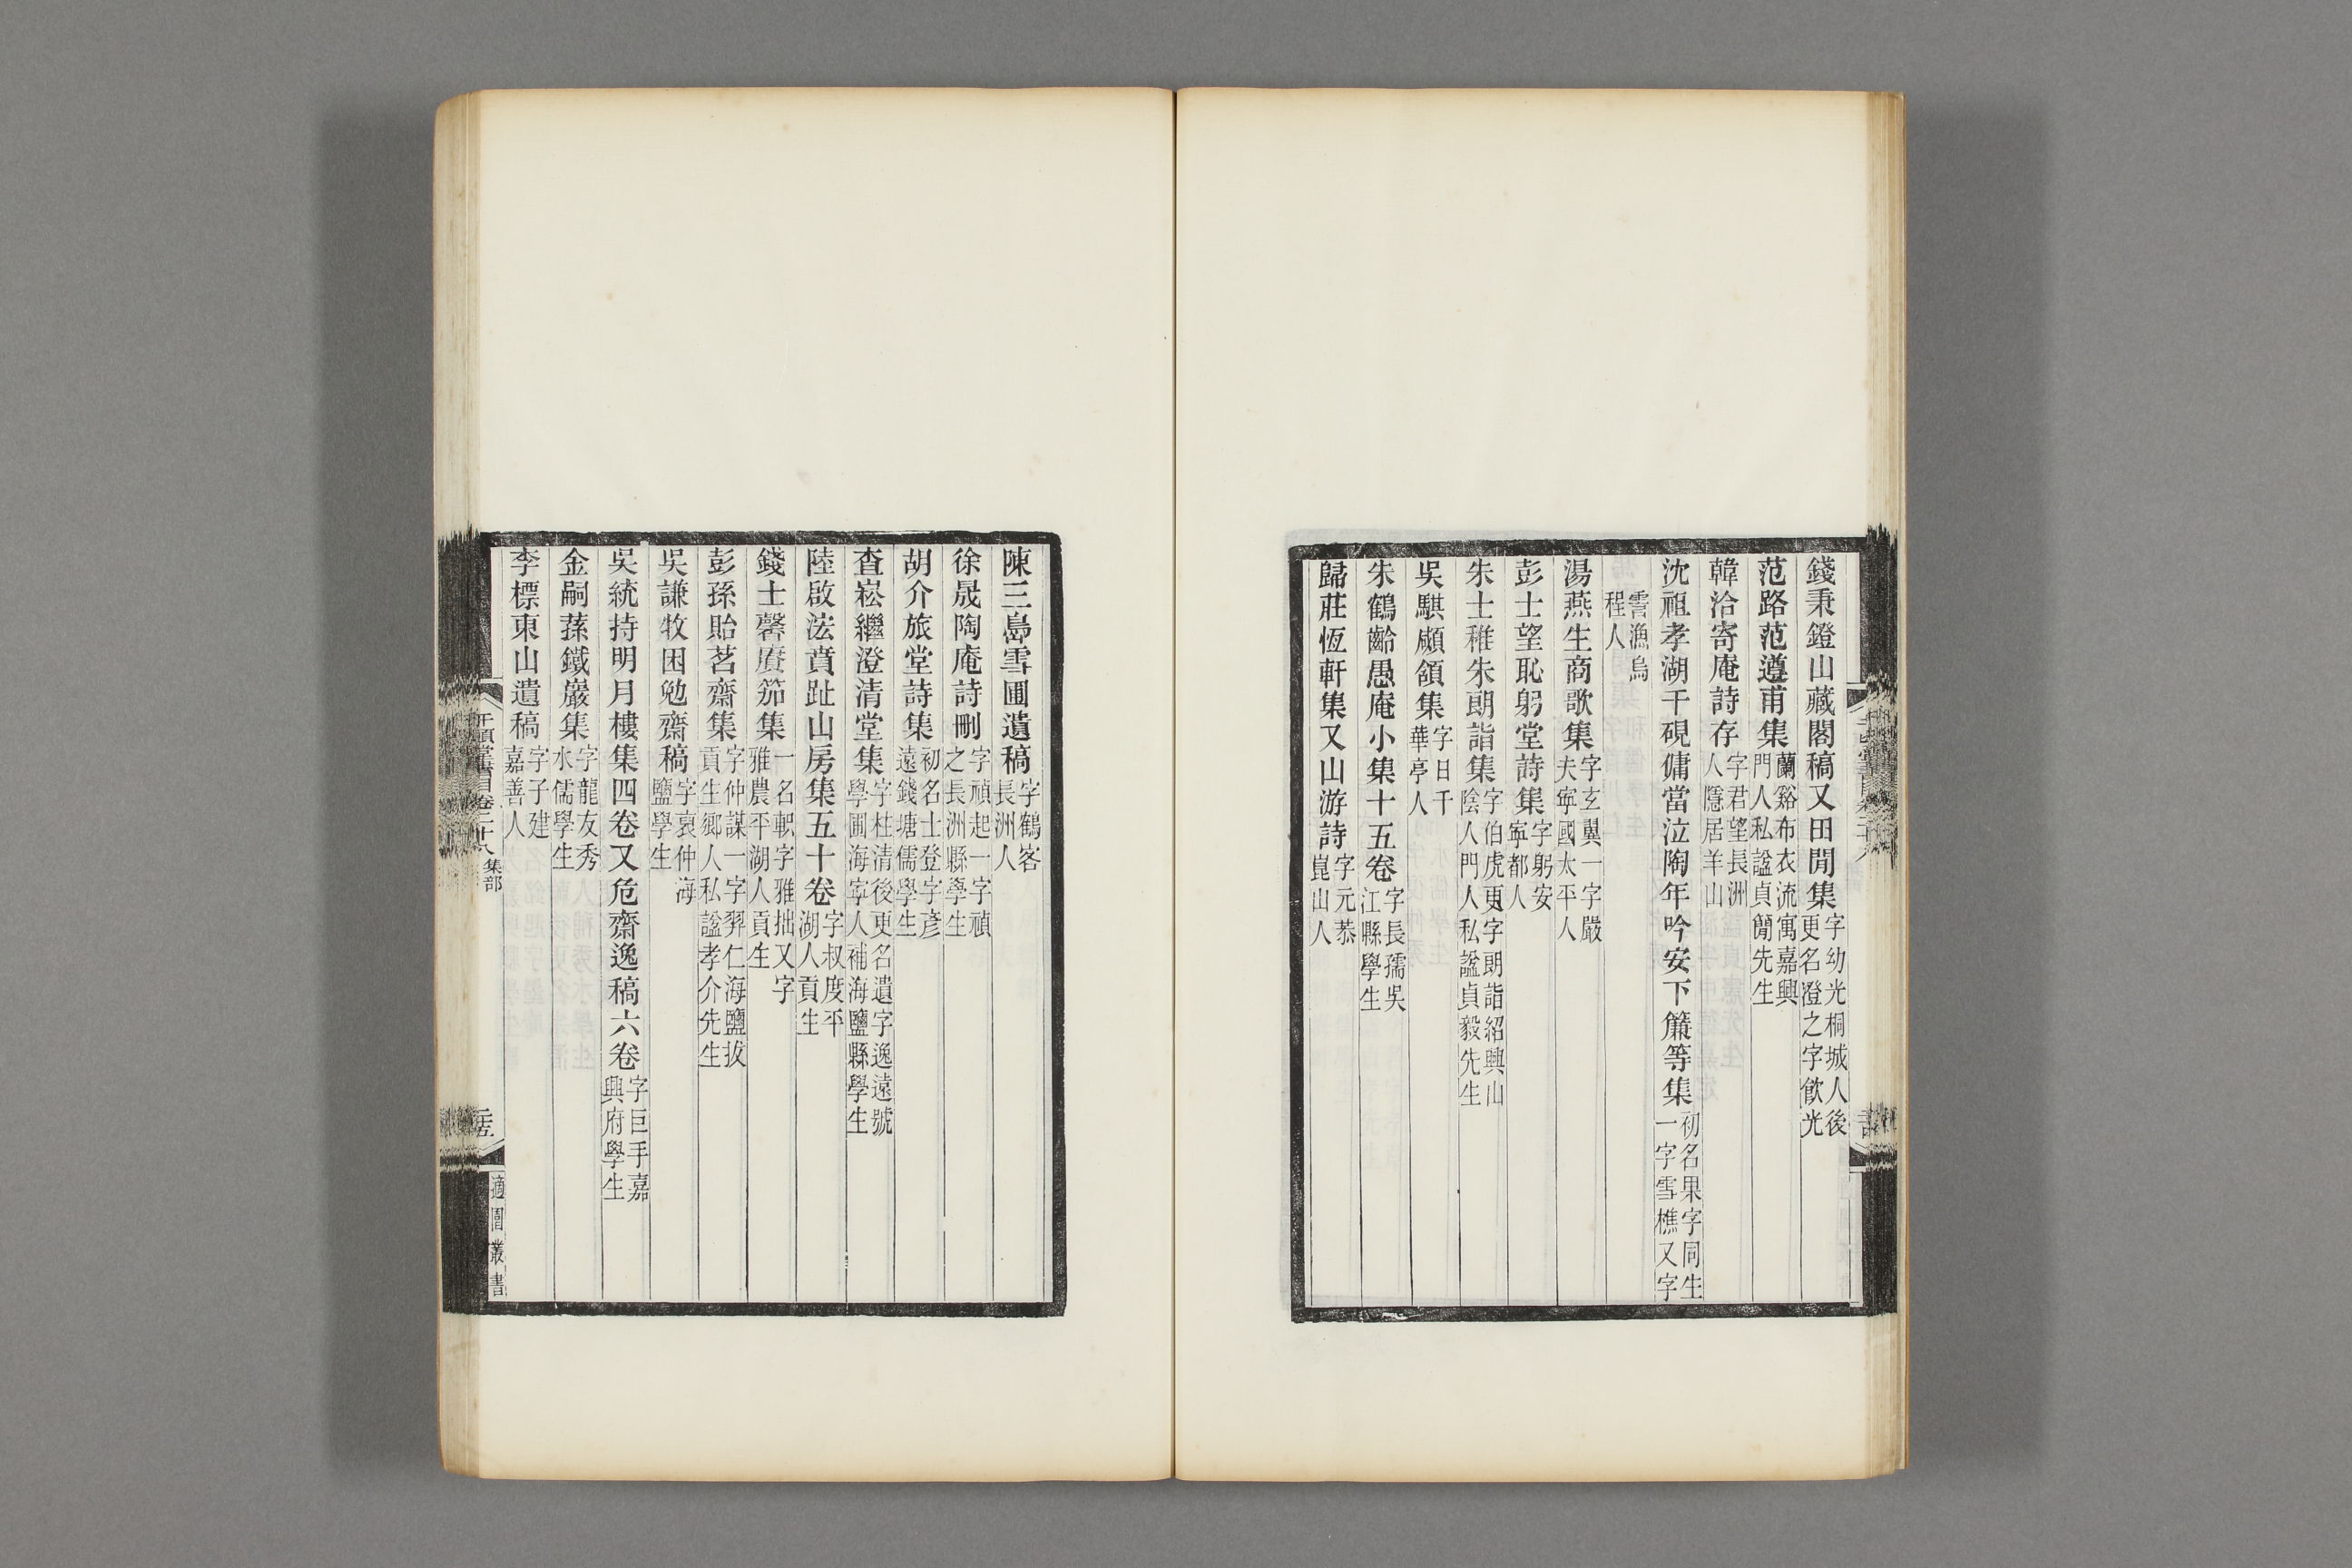 錢秉鐙山藏閣稿又田間集字幼光桐城人後更名澄之字飮光
范路范遵甫集蘭谿布衣流寓嘉興門人私諡貞簡先生
韓洽寄庵詩存字君望長洲人隱居羊山
沈祖孝湖干硯傭當泣陶年吟安下簾等集初名果字同生一字雪樵又字
雪漁烏程人
湯燕生商歌集字玄翼一字嚴夫寧國太平人
彭士望恥躬堂詩集字躬安寧都人
朱士稚朱朗詣集字伯虎更字朗詣紹興山陰人門人私諡貞毅先生
吳騏顑頷集字日千華亭人
朱鶴齡愚庵小集十五卷字長孺吳江縣學生
歸莊恆軒集又山游詩字元恭崑山人
陳三島雪圃遺稿字鶴客長洲人
徐晟陶庵詩刪字禎起一字禎之長洲縣學生
胡介旅堂詩集初名士登字彥遠錢塘儒學生
查崧繼澄清堂集字柱清後更名遺字逸遠號學圃海寧人補海鹽縣學生
陸啟浤賁趾山房集五十卷字叔度平湖人貢生
錢士馨賡笳集一名軹字雅拙又字雅農平湖人貢生
彭孫貽茗齋集字仲謀一字羿仁海鹽拔貢生鄉人私諡孝介先生
吳謙牧困勉齋稿字裒仲海鹽學生
吳統持明月樓集四卷又危齋逸稿六卷字巨手嘉興府學生
金嗣蓀鐵巖集字龍友秀水儒學生
李標東山遺稿字子建嘉善人
千頃堂書目卷二十八 集部
適園叢書